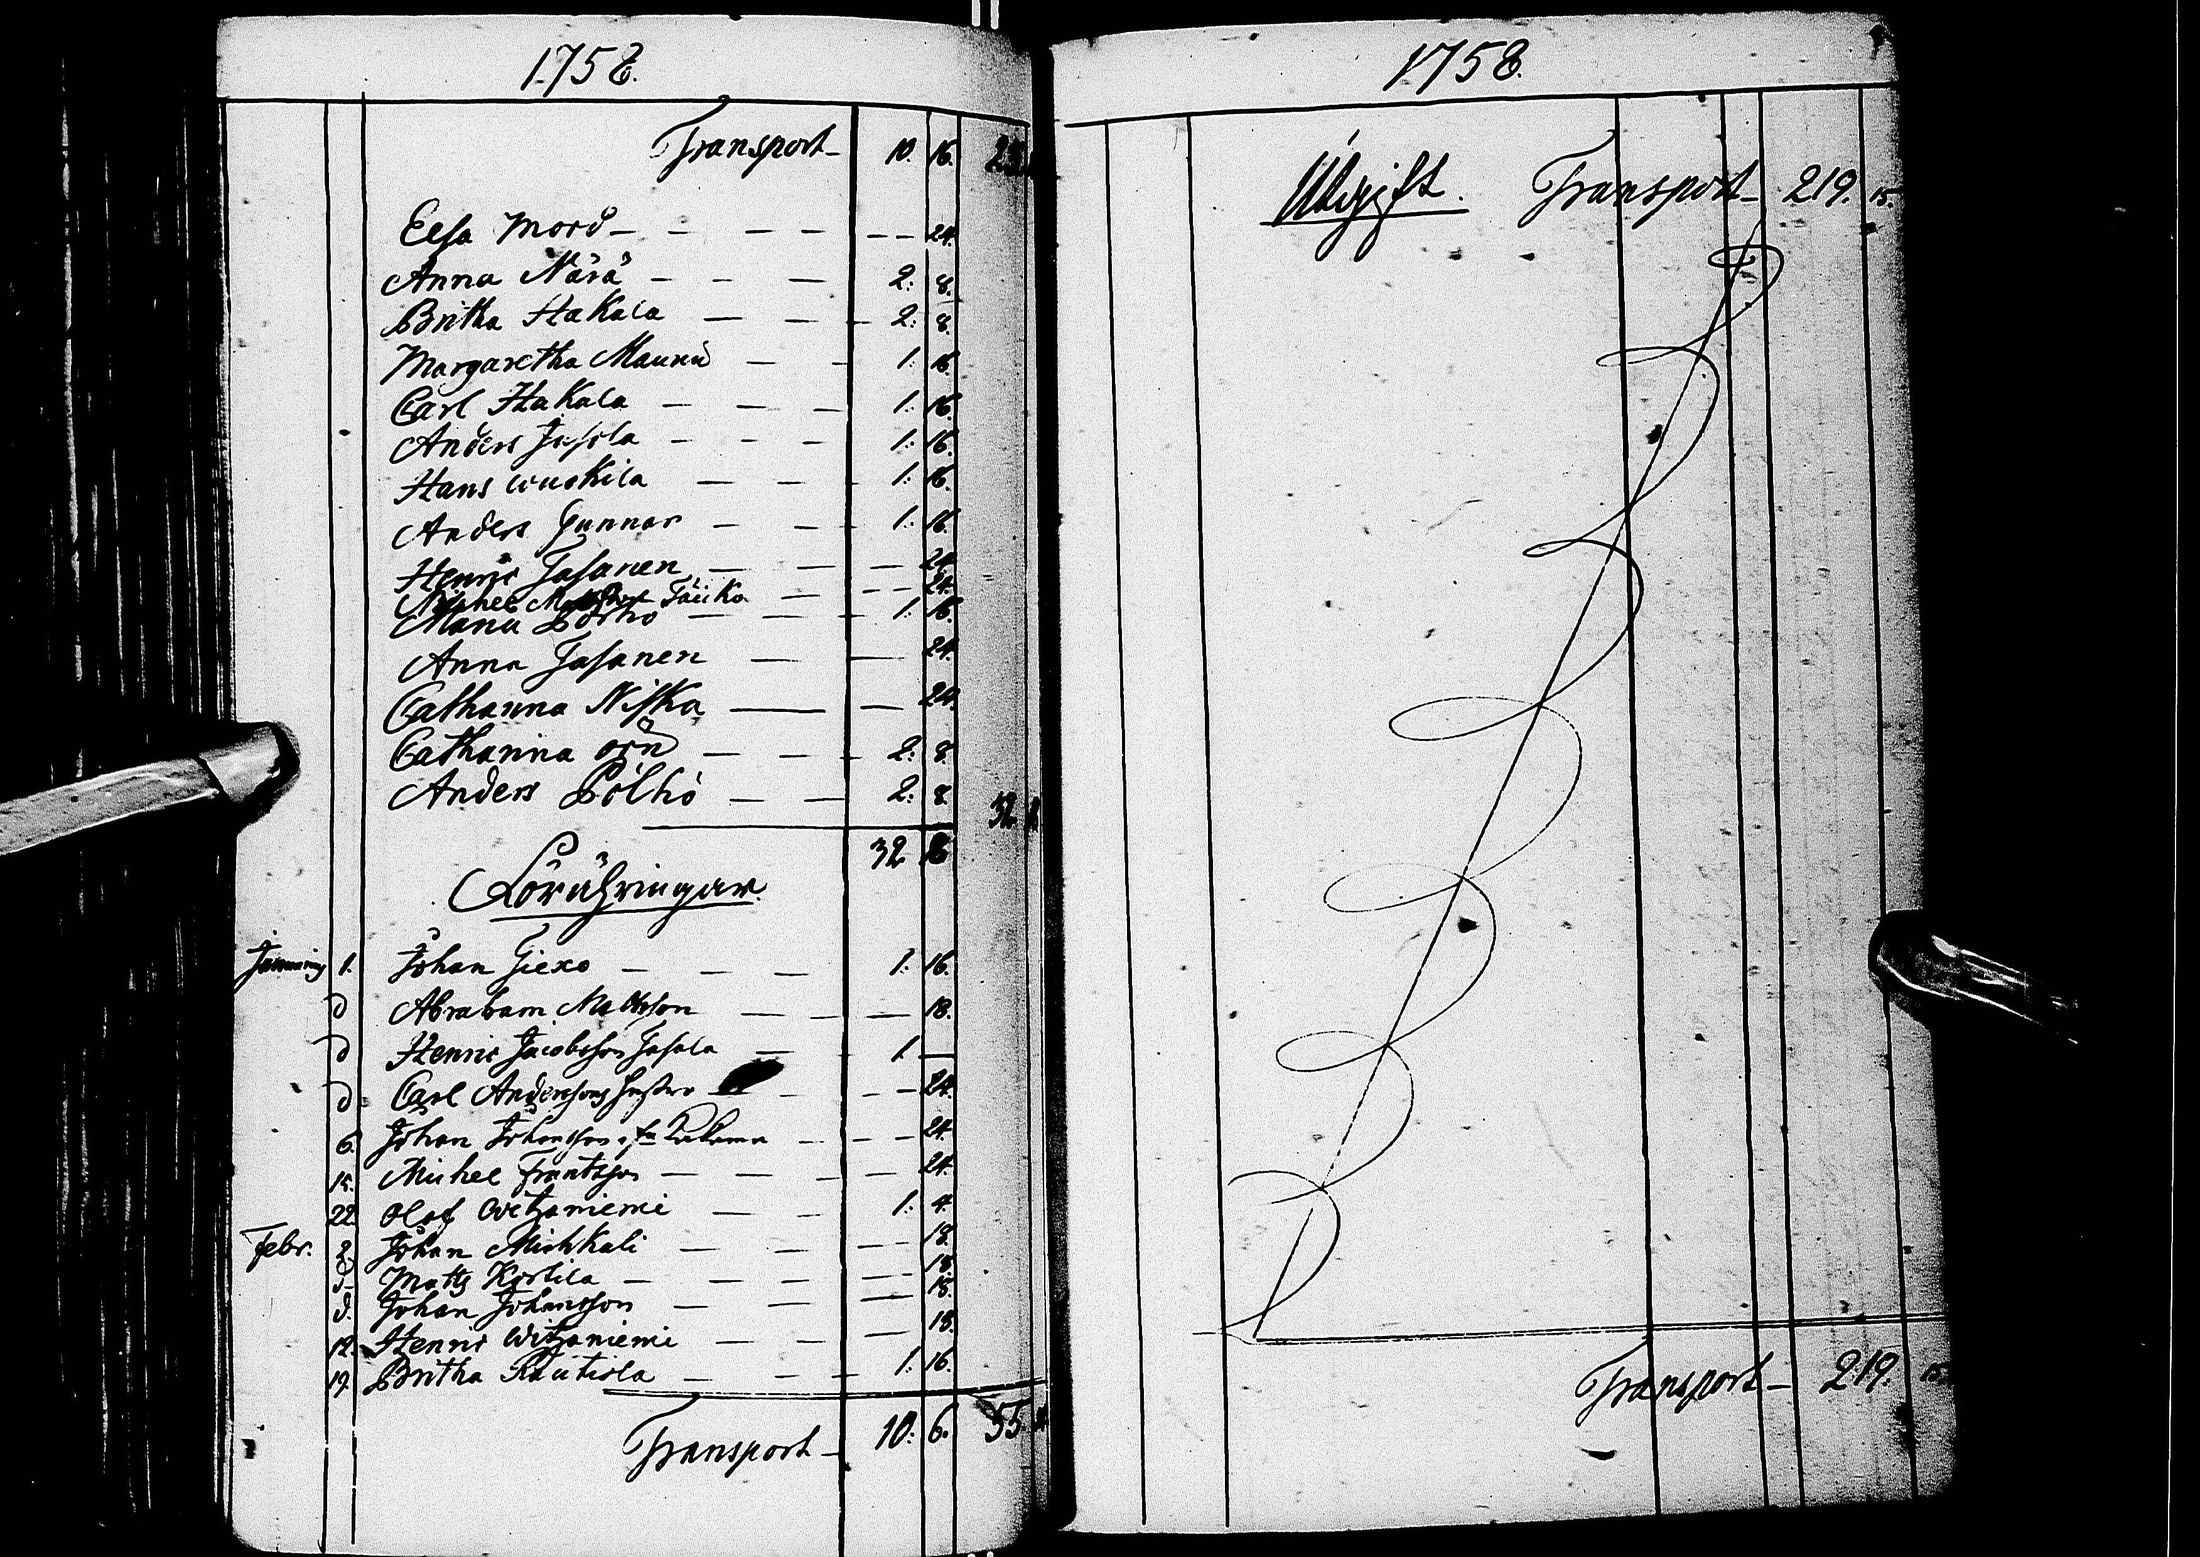 1758.
Transport — 10. 16. 23.
Elsa Mord — 24.
Anna Närä — 2: 8.
Britha Hakala — 2: 8.
Margaretha Maunu — 1: 16.
Carl Hakala — 1: 16.
Anders — 1: 16.
Hans — 1: 16.
Anders Gunnar — 1: 16.
Henric Jasanen — 24.
Michel — 24.
1: 16.
Anna Jasanen — 24.
Catharina Niska — 24.
Catharina — 2: 8.
Anders Pölhö — 2: 8.
32.
32
Förähringar.
1. Johan Giexo — 1: 16.
d Abraham Mattsson — 18.
d Henric Jacobsson Jasala — 1 —
d Carl Anderssons hustro — 24.
6. Johan Johansson — 24.
15. Michel Frantsson — 24.
22. Olof Witzaniemi — 1: 4.
Febr. 2. Johan — 18.
Matts — 18.
d. Johan Johansson — 18.
12. Henric Witzaniemi — 18.
19. Britha Rautiola — 1: 16.
Transport — 10: 6. 55.
1758.
Utgift. Transport — 219. 15.
Transport — 219. 15.